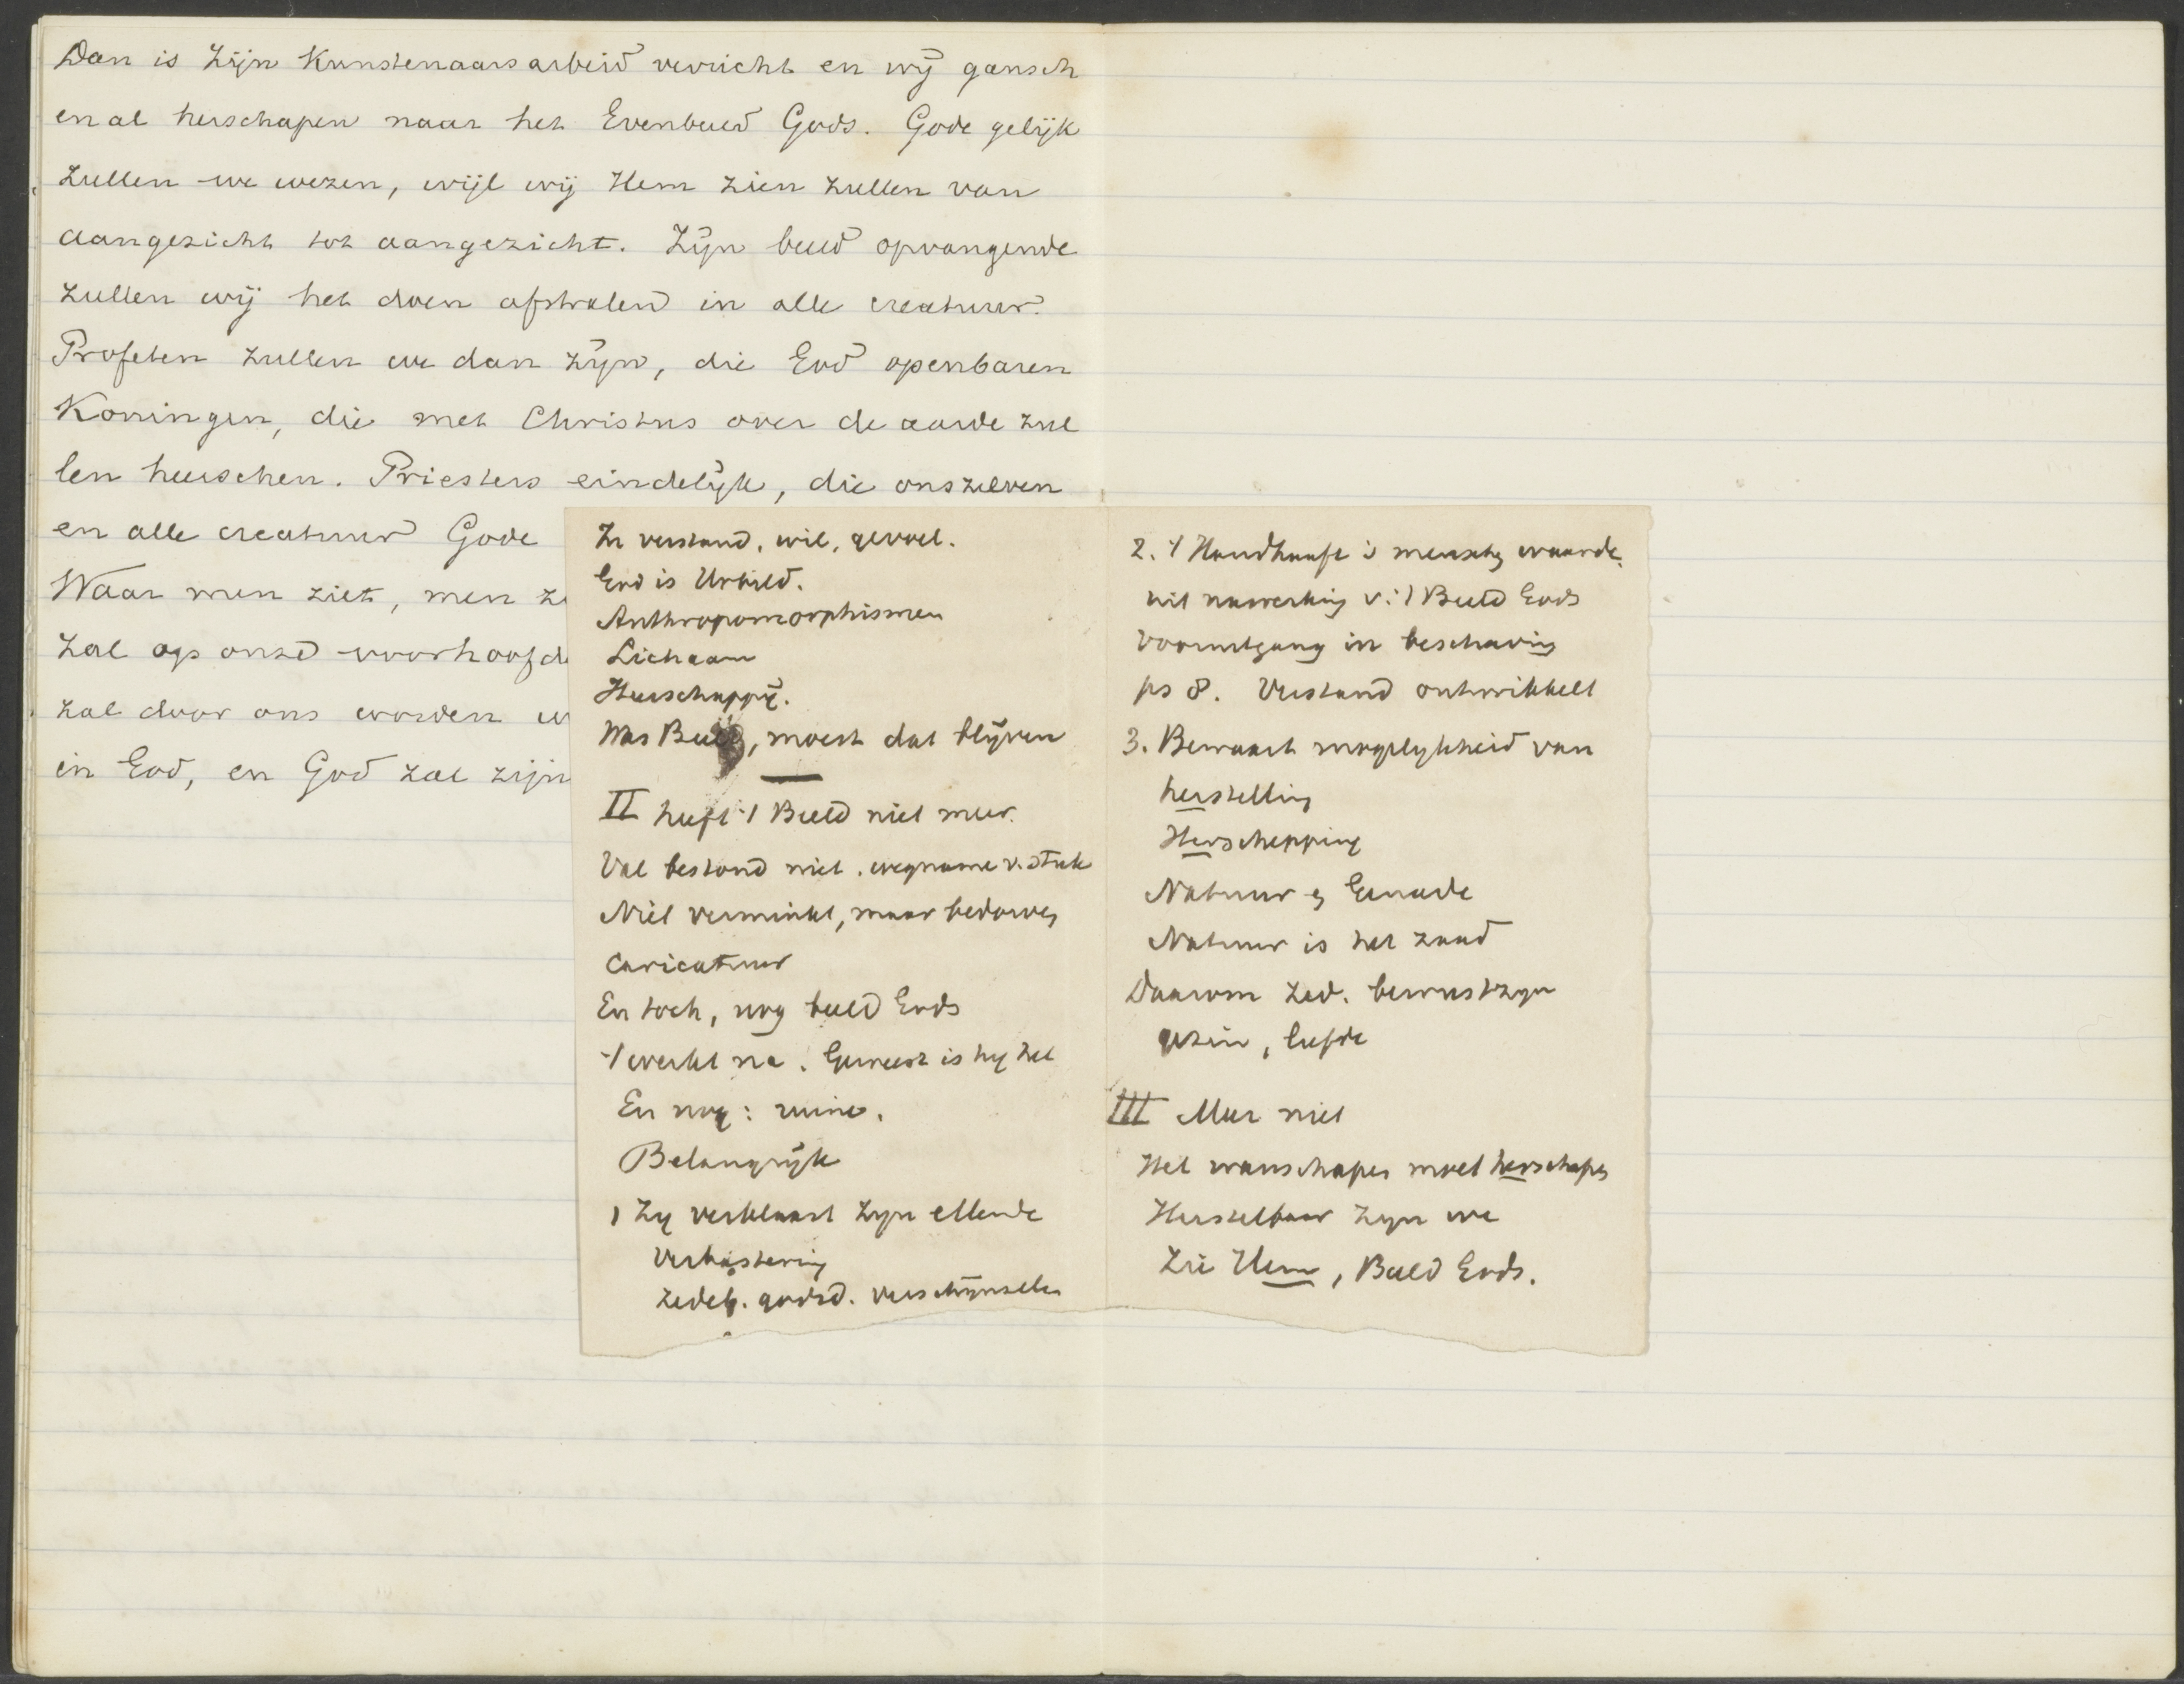 Dan is Zijn Kunstenaarsarbeid verricht en wij gansch
en al herschapen naar het Evenbeeld Gods. Gode gelijk
zullen we wezen, wijl wij Hem zien zullen van
aangezicht tot aangezicht. Zijn beeld opvangende
zullen wij het doen afstralen in alle creatuur.
Profeten zullen we dan zijn, die God openbaren
Koningen, die met Christus over de aarde zul
len heerschen. Priesters eindelijk, die onszelven
en alle creatuur Gode
Waar men ziet, men
zal op onze voorhoofd
zal door ons worden
in God, en God zal zijn
In verstand, wil, gevoel.
God is Urbild.
Anthropomorphismen
Lichaam
Heerschappij.
Was Beeld, moest dat blijven
II heeft 't Beeld niet meer.
Val bestond niet. wegname v. stuk
Niet verminkt, maar bedorven
Caricatuur
En toch, nog beeld Gods
't werkt na. Geweest is hij het
En nog: ruine.
Belangrijk
1 Zij verklaart zijn ellende
Verbastering
zedel. godsd. verschijnselen
2. 't Handhaaft 's menschen waarde.
uit nawerking v. 't Beeld Gods
Vooruitgang in beschaving
ps 8. Verstand ontwikkelt
3. Bewaart mogelijkheid van
herstelling
Herschepping
Natuur en Genade
Natuur is het zaad
Daarom zed. bewustzijn
gezin, liefde
III Meer niet
Het wanschapen moet herschapen
Herstelbaar zijn we
Zie Hem, Beeld Gods.